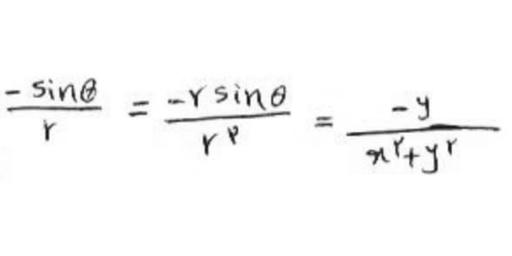 -sinθ/r = -r sinθ/r^۲ = -y/(x^۲+y^۲)